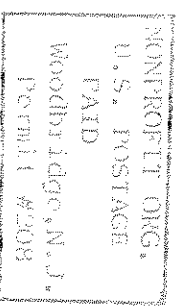 NONPROFIT ORG.
U. S. POSTAGE
PAID
WOODBRIDGE, N. J.
Permit #208